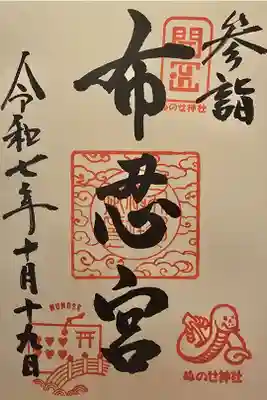 参詣
開運
ぬのせ神社
布忍宮
令和七年十月十九日
NUNOSE
ぬのせ神社